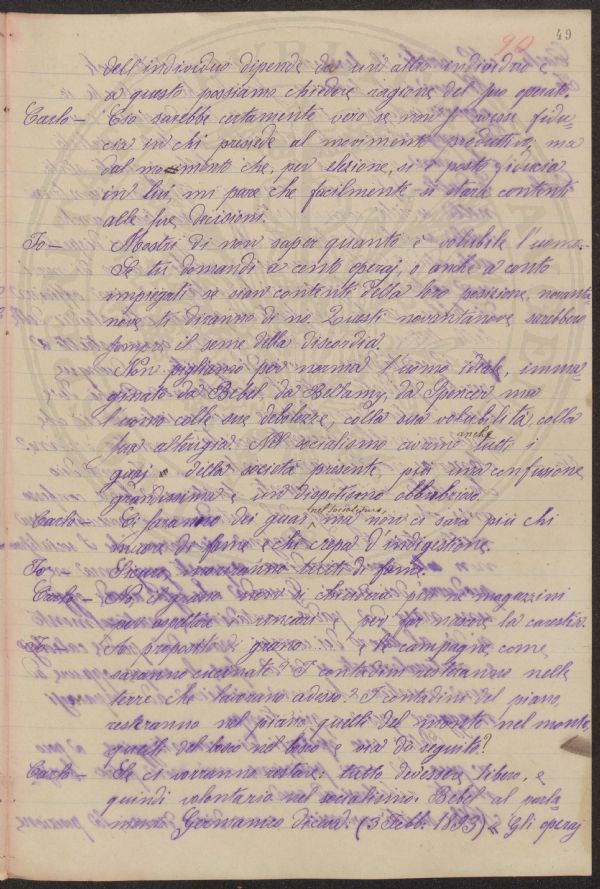 90
49
dell'individuo dipende da un altro individuo e
a questo possiamo chiedere ragione del suo operato.
Carlo — Ciò sarebbe certamente vero se non ci fosse fidu-
cia in chi presiede al movimento produttivo, ma
dal momento che, per elezione, si è posta fiducia
in lui, mi pare che facilmente si starà contenti
alle sue decisioni.
Io — Mostri di non saper quanto è volubile l'uomo.
Se tu domandi a cento operaj, o anche a cento
impiegati se sian contenti della loro posizione, novanta-
nove ti diranno di no. Questi novantanove sarebbero
sempre il seme della discordia.
Non pigliamo per norma l'uomo ideale, imma-
ginato da Bebel, da Bellamy, da Spencer, ma
l'uomo colle sue debolezze, colla sua volubilità, colla
sua alterigia. Nel socialismo avremo anche tutti i
guai della società presente, più una confusione
grandissima e un dispotismo obbrobrioso.
Carlo — Ci saranno dei guai nel socialismo, ma non ci sarà più chi
muore di fame e chi crepa d'indigestione.
Io — Sicuro, morranno tutti di fame.
Carlo — No, il grano non si chiuderà più ne' magazzini
per aspettare i rincari per far nascere la carestia.
Io — A proposito di grano: e le campagne come
saranno 
terre che lavorino adesso? I contadini del piano
resteranno nel piano, quelli del monte nel monte,
questi del loro nel loro e via di seguito?
Carlo — Se ci vorranno restare: tutto dev'essere libero, e
quindi volontario nel socialismo. Bebel al parla-
mento Germanico diceva: (3 Febb. 1893) « Gli operaj